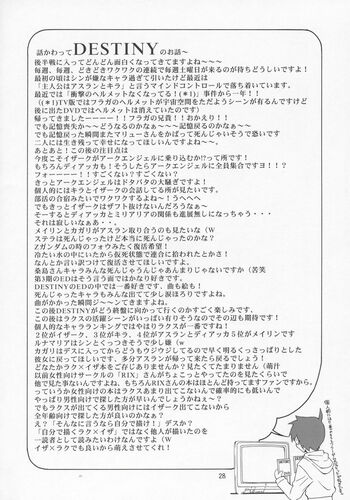 話かわってDESTINYのお話～
後半戦に入ってどんどん面白くなってきてますよね～～～
毎週、毎週、どきどきワクワクの連続で毎週土曜日が来るのが待ちどうしいですよ！
最初の頃はシンが嫌なキャラ過ぎて引いたけど最近は
「主人公はアスランとキラ」と言うマインドコントロールで落ち着いています。
最近では「衝撃のヘルメットなくなってる！(*1)」事件から一年！！
（(*1)TV版ではフラガのヘルメットが宇宙空間をただようシーンが有るんですけど
後に出たDVDではヘルメットは消えていたのです）
帰ってきましたーーーー！！フラガの兄貴！！おかえり！！
でも記憶喪失か～どうなるのかなぁ～～～記憶戻るのかなぁ～～
でも記憶戻った瞬間またマリューさんをかばって死んじゃいそうで恐いです
二人には生き残って幸せになってほしいんですよね～～。
あとあと！この後の注目点は
今度こそイザークがアークエンジェルに乗り込むか!?って所です！
もちろんディアッカも！そうしたらアークエンジェルに全員集合ですヨ！！？
フォーーーーー！！すごくない？すごくない？
きっとアークエンジェルはドタバタの大騒ぎですよ！
個人的にはキラとイザークの会話してる所が見たいです。
部活の合宿みたいでワクワクするよね～！うへへへ
でもきっとイザークはザフト抜けないんだろうなぁ～
そーするとディアッカとミリアリアの関係も進展無しになっちゃう・・・
それは寂しいなぁぁ・・。
メイリンとカガリがアスラン取り合うのも見たいな（W
ステラは死んじゃったけど本当に死んじゃったのかな？
Zガンダムの時のフォウみたく復活希望！
冷たい水の中にいたから仮死状態で連合に拾われたとかさ！
なんとか言い訳つけて復活させてほしいですよ。
桑島さんキャラみんな死んじゃうんじゃあんまりじゃないですか（苦笑
第3期のEDはそう言う面ではかなり好きです。
DESTINYのEDの中では一番好きです、曲も絵も！
死んじゃったキャラもみんな出てて少し戻はろりですよね。
曲がかかった瞬間ジ～ンてきますよね。
この後DESTINYがどう終盤に向かって行くのかすごく楽しみです。
後ラクスの活躍シーンがいっぱい有りそうなのでその辺も期待です！
個人的なキャラランキングではやはりラクスが一番ですね！
２位がイザーク、３位がキラ、４位がアスランとディアッカ５位がメイリンです
ルナマリアはシンとくっつきそうで少し嫌（w
カガリはデスに入ってからどうもウジウジしてるので早く明るくさっぱりとした
彼女に戻ってほしいです、多分アスランが帰って来たら戻るでしょう！
どなたかラクス×イザ本をご存じありませんか？見たくてたまりません（萌汁
以前女性向けサークルの「RIX」さんがちょこっとやってたのを見たくらいで
他で見た事ないんですよね、もちろんRIXさんの本はほとんど持ってますファンですから。
っていうか女性向けの本はラクスあまり出てこないんで確率的にも低いんで
やっぱり男性向けで探した方が早いんでしょうかねぇ～？
でもラクスが出てくる男性向けにはイザーク出てこないから
全年齢向けで探した方が良いのかなぁ？
え？「そんなに言うなら自分で描け！」デスか？
「自分で描くラク×イザ」ではなく他人が描いたのを
一読者として読みたいわけなんですよ（W
イザ×ラクでも良いから萌えさせてくれ！
28